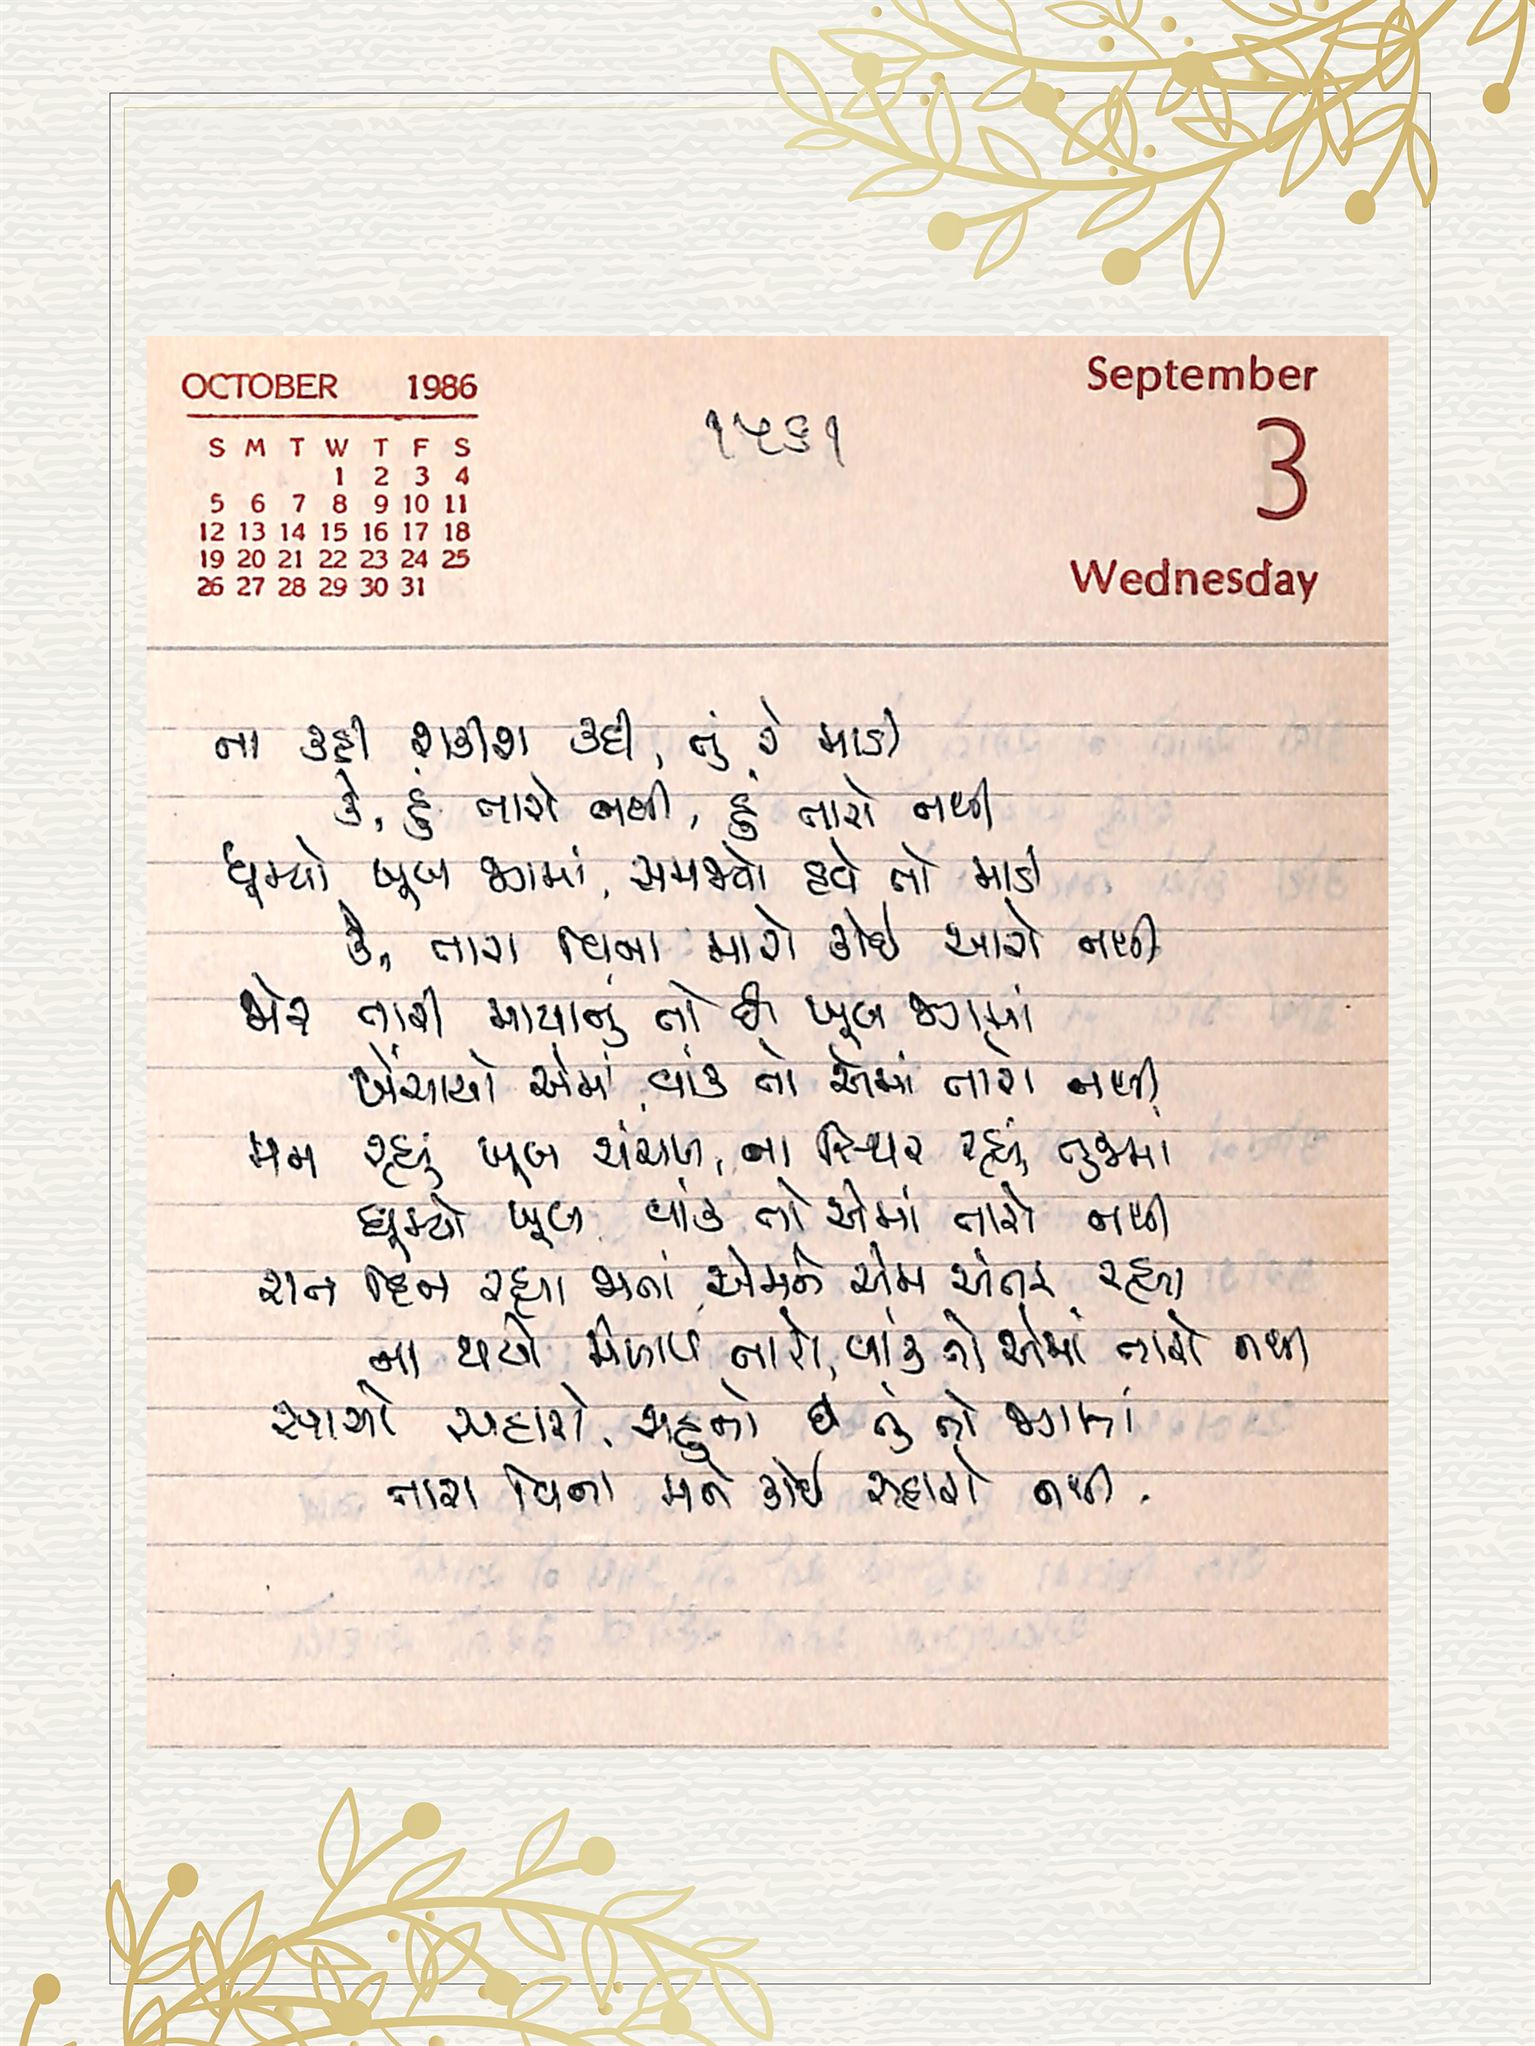 OCTOBER 1986
S M T W T F S
1 2 3 4
5 6 7 8 9 10 11
12 13 14 15 16 17 18
19 20 21 22 23 24 25
26 27 28 29 30 31
૧૫૬૧
September
3
Wednesday
ના કહી શકીશ કદી, તું રે માડી
કે, હું તારો નથી, હું તારો નથી
ઘૂમ્યો ખૂબ જગમાં, સમજ્યો હવે તો માડી
કે, તારા વિના મારો કોઈ આરો નથી
જોર તારી માયાનું તો છે ખૂબ જગમાં
ખેંચાયો એમાં, વાંક તો એમાં તારો નથી
મન રહ્યું ખૂબ ચંચળ, ના સ્થિર રહ્યું તુજમાં
ઘૂમ્યો ખૂબ, વાંક તો એમાં તારો નથી
રાત દિન રહ્યા જતાં, એમને એમ અંતર રહ્યા
ના થયો મેળાપ તારો, વાંક તો એમાં તારો નથી
સાચો સહારો, સહુનો છે તું તો જગમાં
તારા વિના મને કોઈ સહારો નથી.